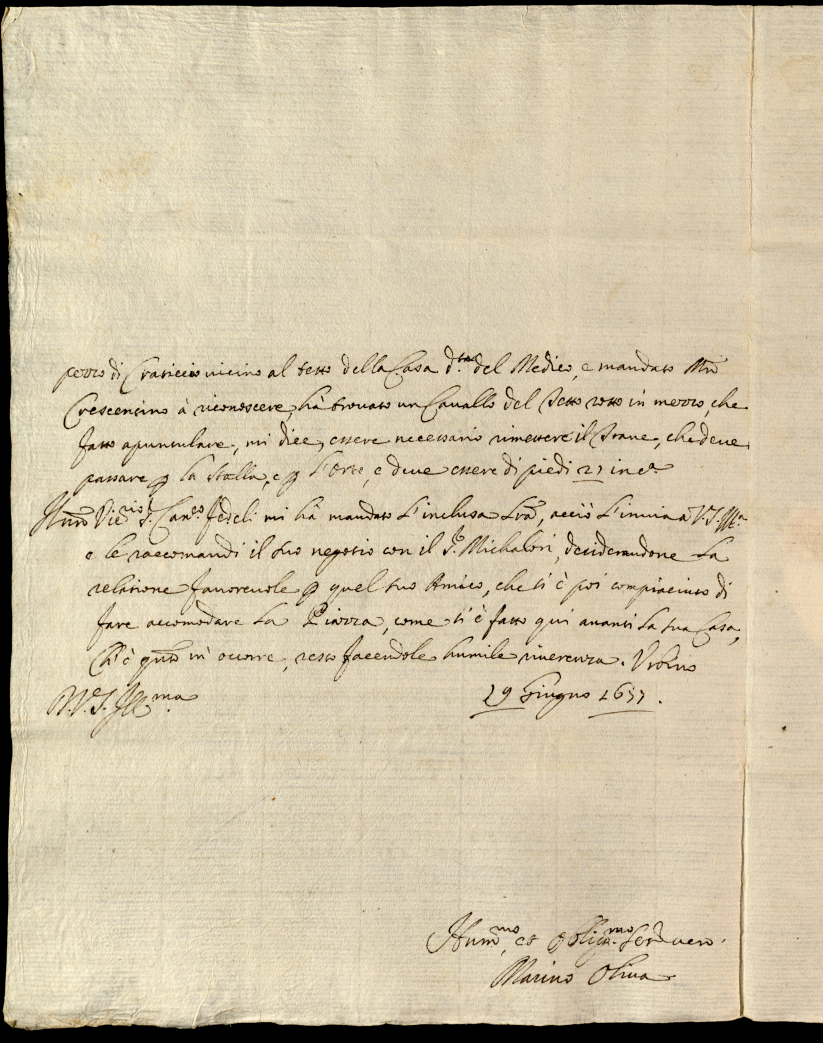 pezzo di Craticcio vicino al tetto della Casa d.ta del Medico, e mandato Mro
Crescentino à riconoscere, hà trovato un Cavallo del Tetto rotto in mezzo, che
fatto apuntulare, mi dice, essere necessario rimettere il Trave, che deve
passare p la stalla, e p l'Orto, e deve essere di piedi 21 in ca.
Il nro Vic.rio S. Can.co Fedeli mi hà mandato l'inclusa lra, acciò l'invia à V.S. Ill.ma
e le raccomandi il suo negotio con il S.r Michalori, desiderandone la
relatione favorevole p quel suo Amico, che si è poi compiaciuto di
fare accomodare la Piazza, come si è fatto qui avanti la sua Casa,
Ch'è qto m' occorre, resto facendole humile riverenza. Urbino
D.V.S. Ill.ma 29 Giugno 1657.
Hum.mo, et Oblig.mo Ser.re vero
Marino Oliva